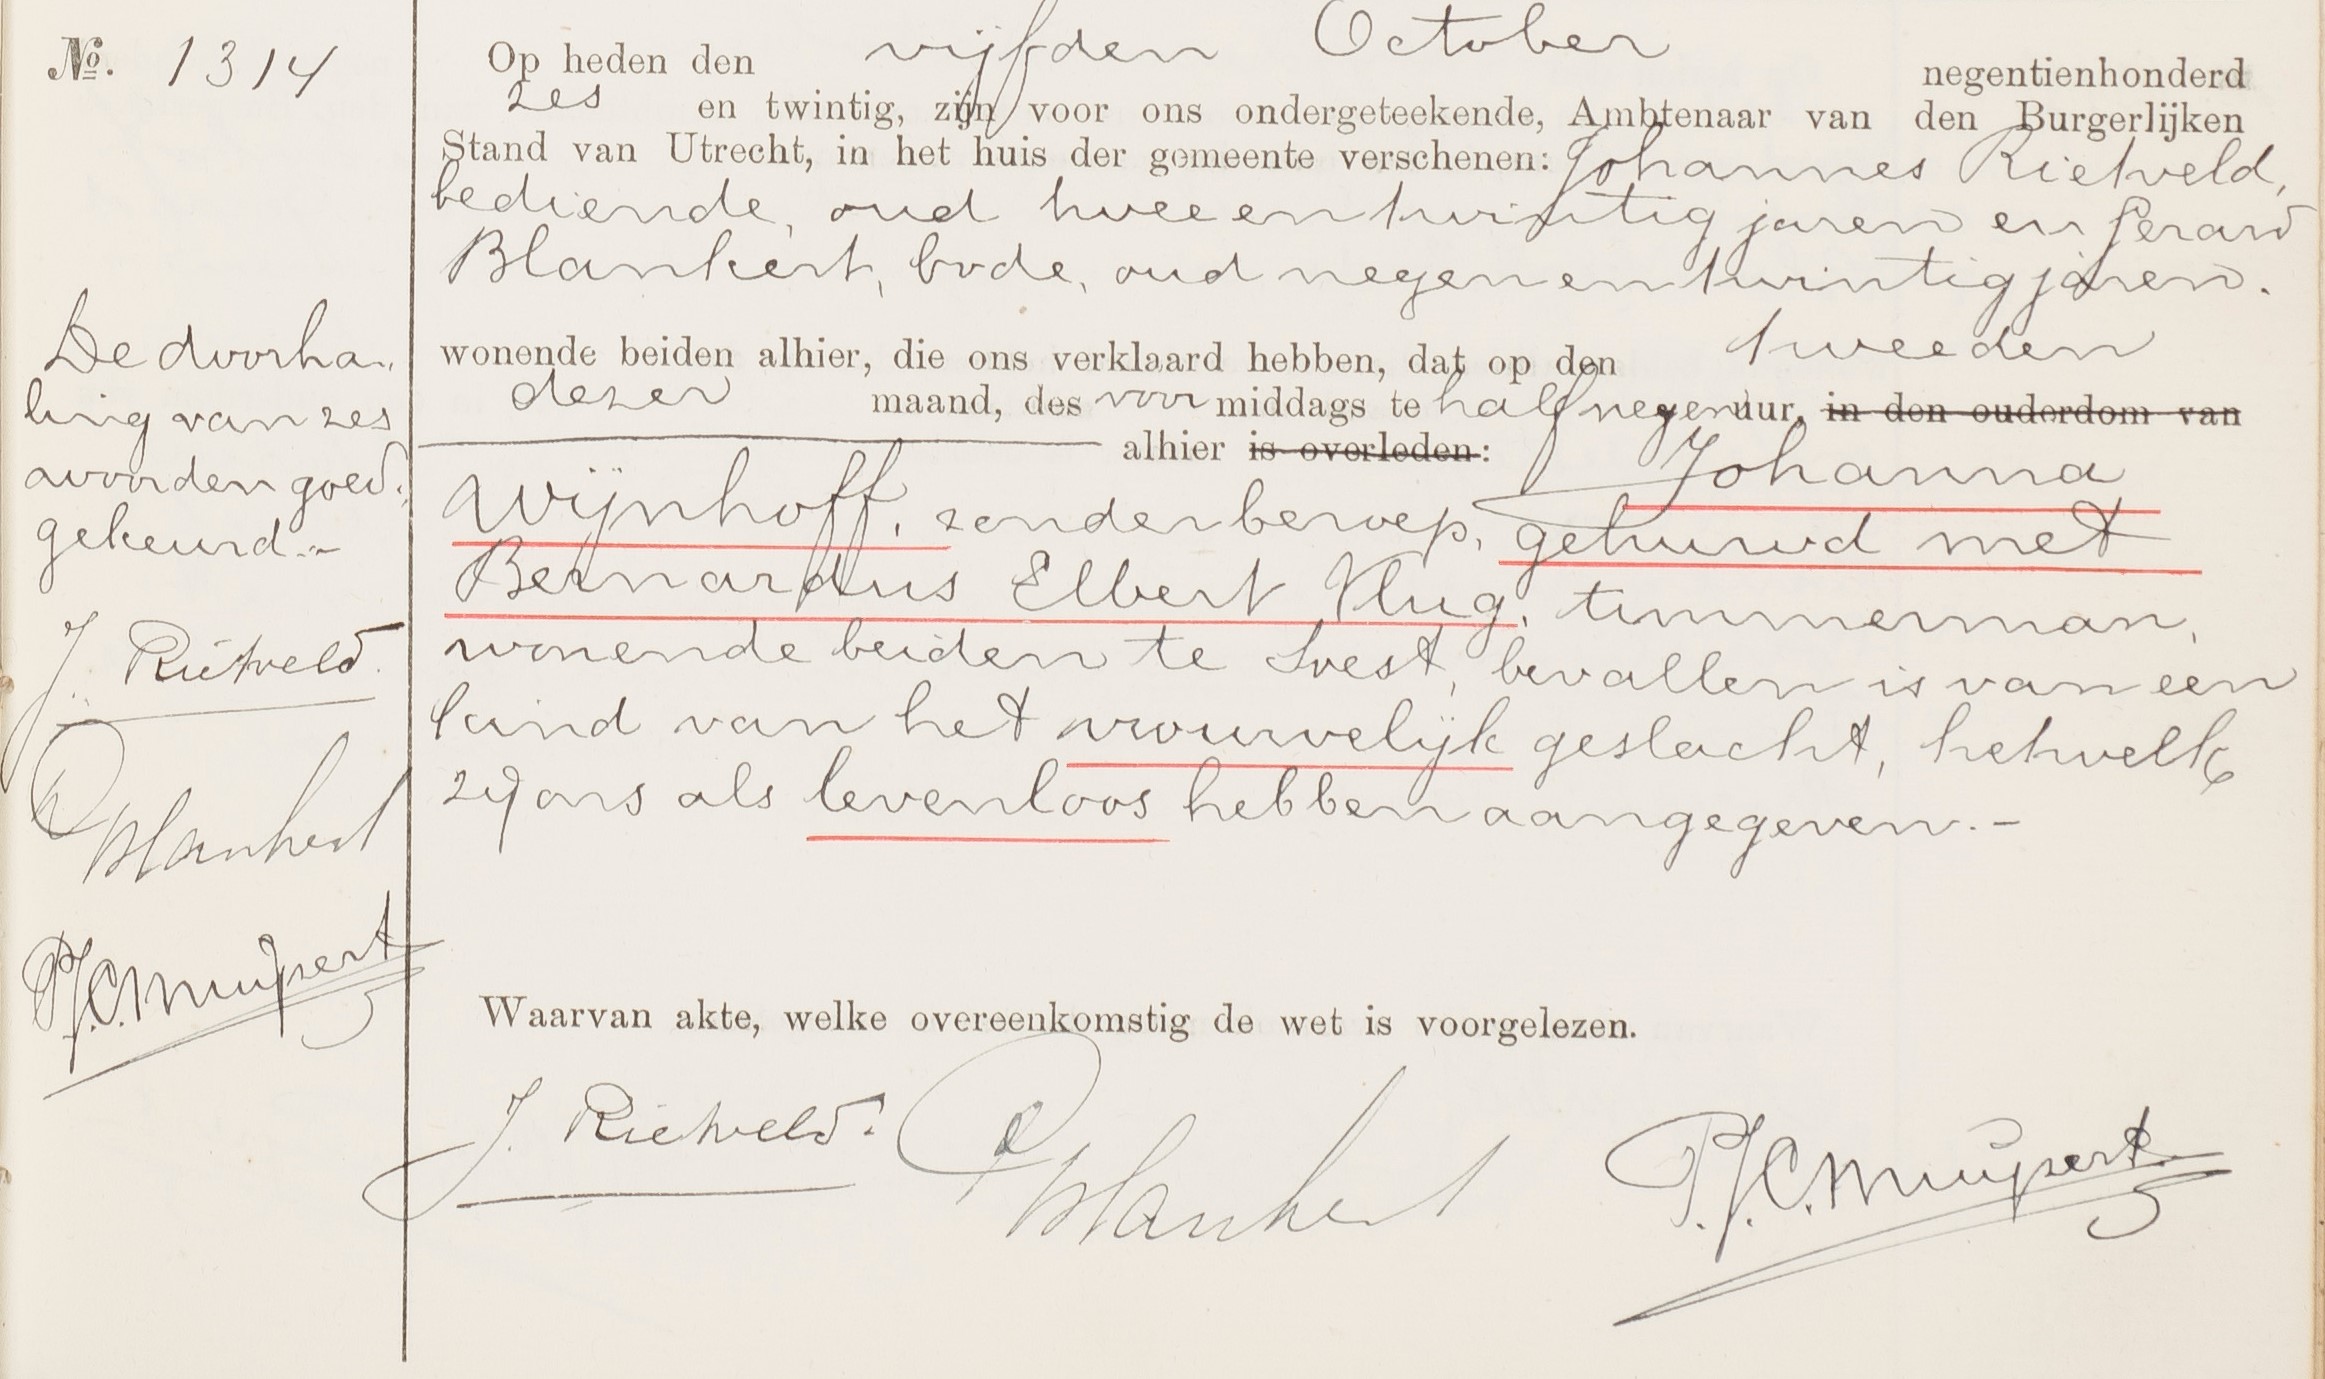 No. 1314
Op heden den vijfden October negentienhonderd
zes en twintig, zijn voor ons ondergeteekende, Ambtenaar van den Burgerlijken
Stand van Utrecht, in het huis der gemeente verschenen: Johannes Rietveld,
bediende, oud tweeentwintig jaren en Gerard
Blankert, bode, oud negenentwintig jaren.
wonende beiden alhier, die ons verklaard hebben, dat op den tweeden
dezer maand, des voormiddags te half negen uur, in den ouderdom van
alhier is overleden: Johanna
Wijnhoff, zonder beroep, gehuwd met
Bernardus Elbert Klug, timmerman,
wonende beiden te Soest, bevallen is van een
kind van het vrouwelijk geslacht, hetwelk
zij ons als levenloos hebben aangegeven.-
De doorha-
ling van zes
woorden goed-
gekeurd.-
J. Rietveld.
G Blankert
P.J.C. Muijsert
Waarvan akte, welke overeenkomstig de wet is voorgelezen.
J. Rietveld. G Blankert P.J.C. Muijsert